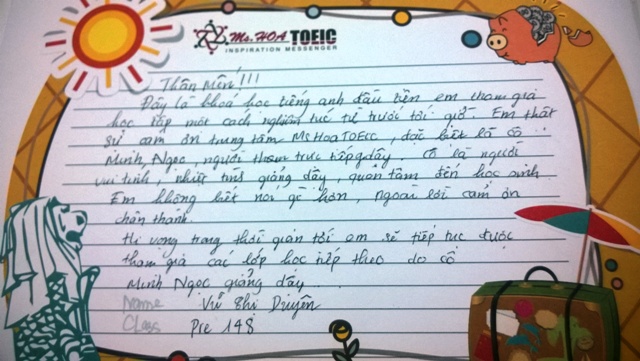 Ms.HOA TOEIC
INSPIRATION MESSENGER
Thân mến!!!
Đây là khoá học tiếng anh đầu tiên em tham gia
học tập một cách nghiêm túc từ trước tới giờ. Em thật
sự cảm ơn trung tâm Ms Hoa TOEIC, đặc biệt là cô
Minh Ngọc, người tham trực tiếp dạy. Cô là người
vui tính, nhiệt tình giảng dạy, quan tâm đến học sinh.
Em không biết nói gì hơn, ngoài lời cảm ơn
chân thành.
Hi vọng trong thời gian tới em sẽ tiếp tục được
tham gia các lớp học tiếp theo do cô
Minh Ngọc giảng dạy.
Name Vũ Thị Duyên
Class Pre 148